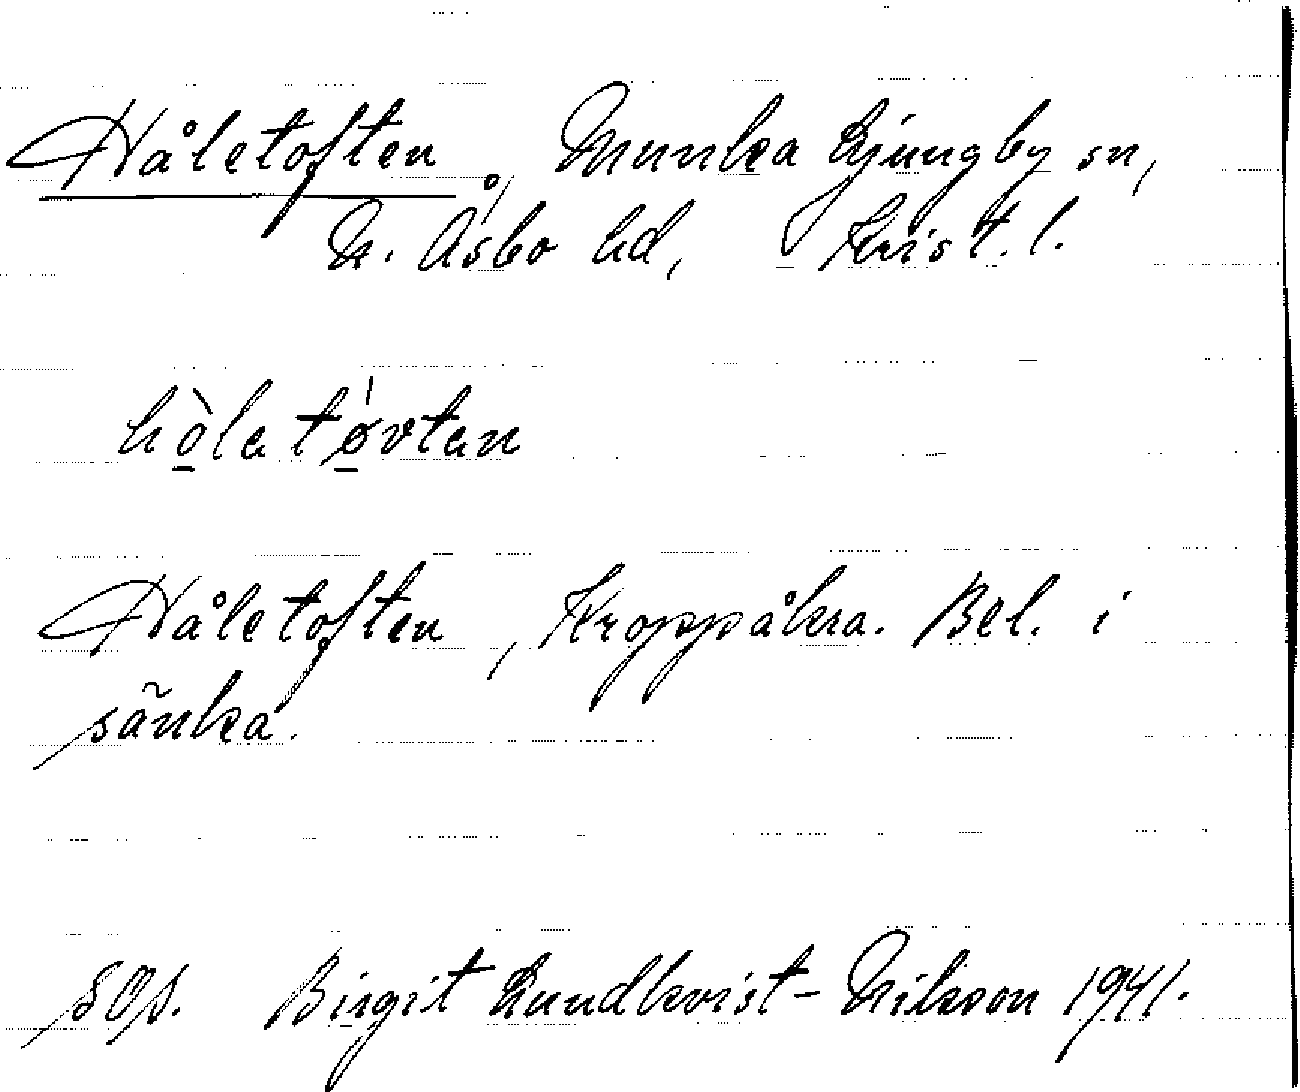 Håletoften, Munka Ljungby sn,
N. Åsbo hd, Krist. l.
hò̱latǿ̱vtan
Håletoften, Kroppåkra. Bel. i
sänka.
SOS. Birgit Lundkvist-Nilsson 1941.